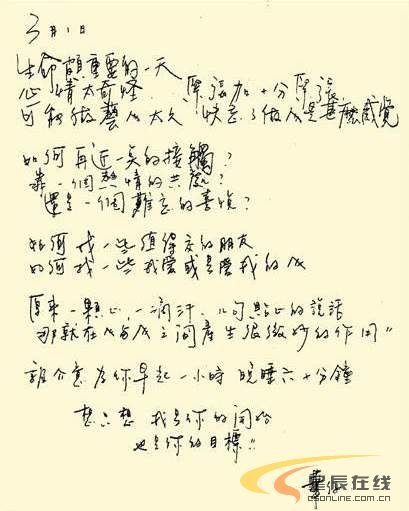 3月1日
生命頗重要的一天
心情太奇怪 緊張加十分緊張
可能做藝人太久 快忘了做人是甚麼感覺
如何再近一點的接觸？
靠一個熱情的共鳴？
還是一個難忘的喜悅？
如何找一些值得交的朋友
如何找一些我愛或是愛我的人
原來一顆心，一滴汗，几句貼心的說話
那就在人與人之間產生很微妙的作用"
誰介意為你早起一小時 晚睡六十分鐘
想只想 我是你的
也是你的目標"
華仔
星辰在线
csonline.com.cn